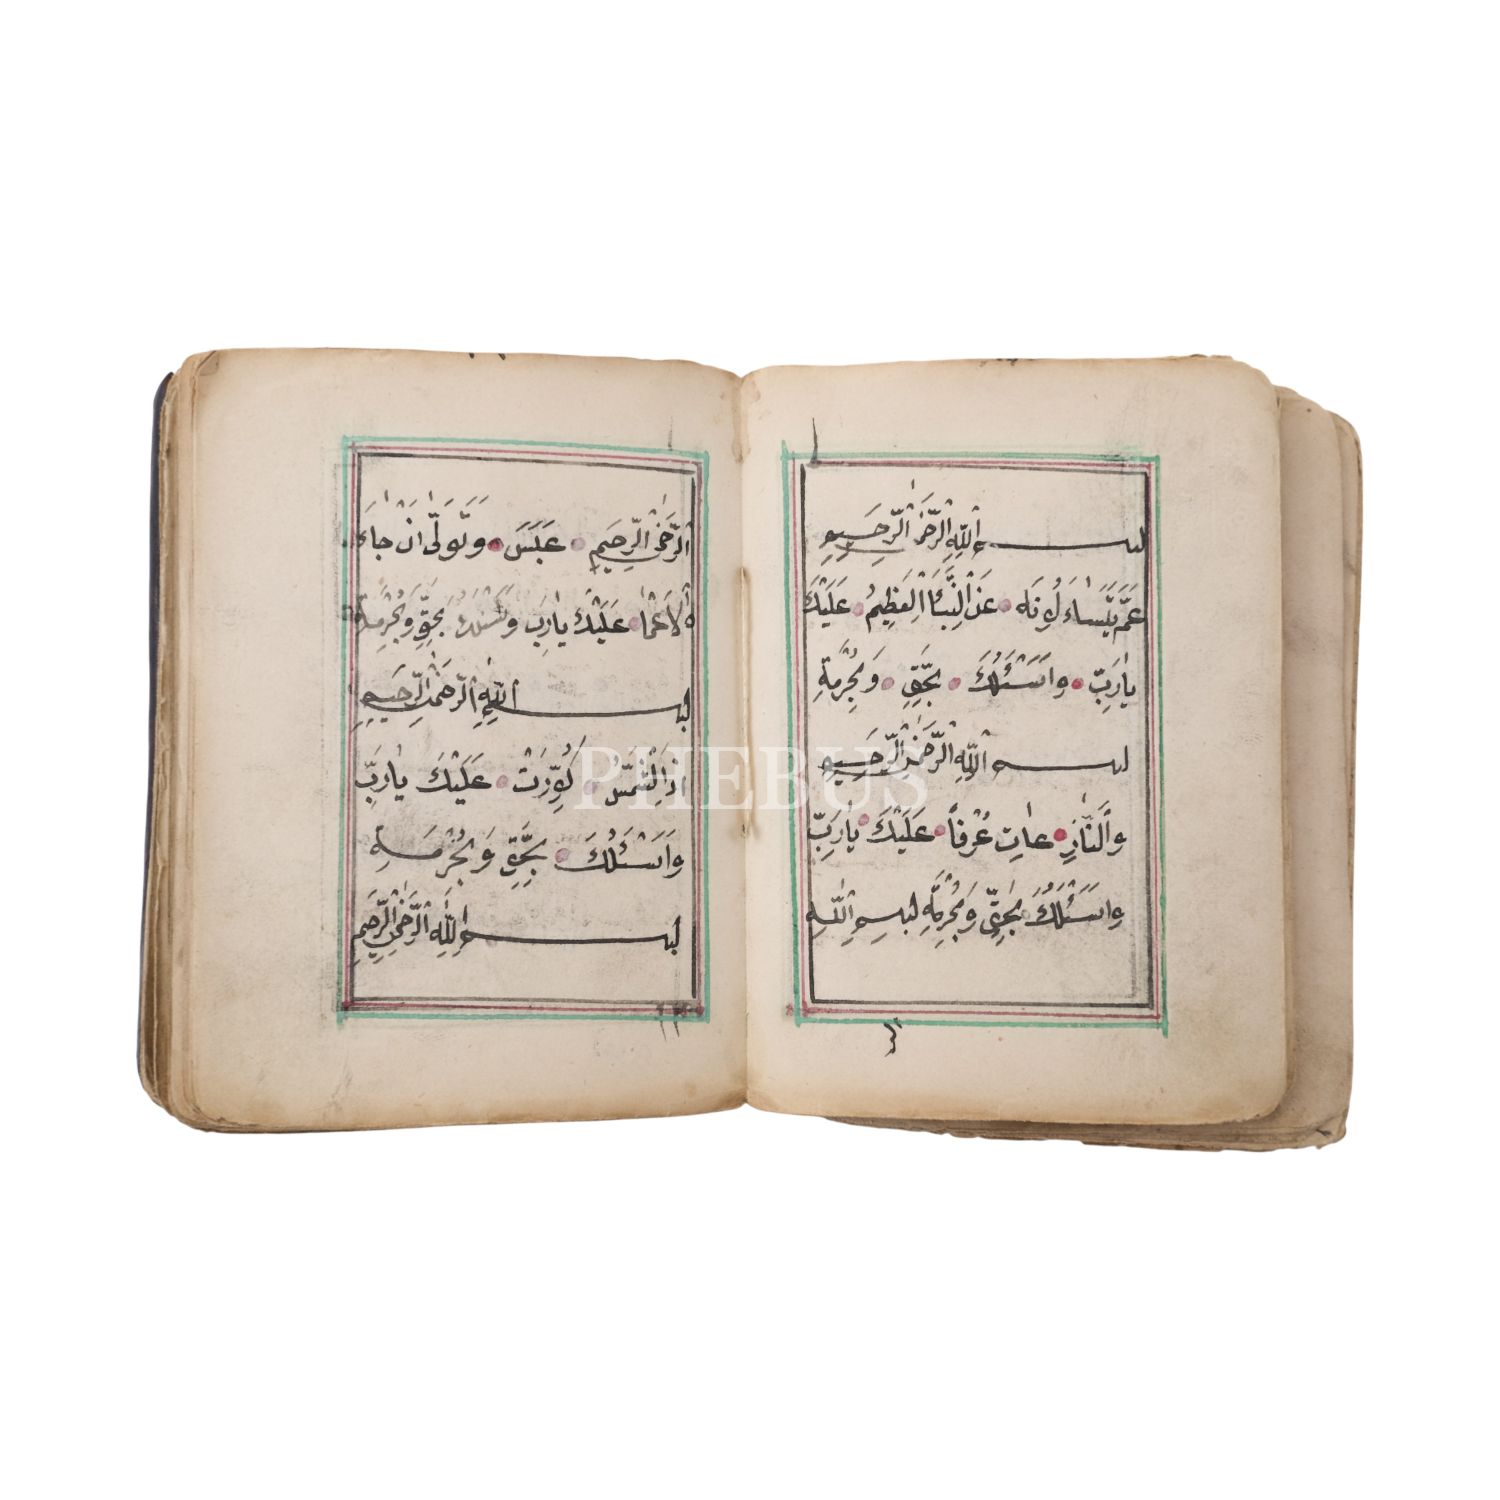 بسم الله الرحمن الرحيم
عَمَّ يَتَسَاءَلُونَهَ عَنِ النَّبَأِ الْعَظِيمُ عَلَيْكَ
يارَبِّ وَاَسْئَلُكَ بِحَقِّ وَبِحُرْمَةِ
بسم الله الرَّحْمٰنِ الرَّحِيمِ
وَالنَّازِ عَاتِ غُرْفاً عَلَيْكَ يارَبِّ
وَاَسْئَلُكَ بِحَقِّ وَبِحُرْمَةِ بِسمِ اللهِ
الرَّحْمٰنِ الرَّحِيمِ عَبَسَ وَتَوَلّٰى اَنْ جَاءَ
هُ الْاَعْمٰا عَلَيْكَ يارَبِّ وَاَسْئَلُكَ بِحَقِّ وَبِحُرْمَةِ
بسم اللهِ الرَّحْمٰنِ الرَّحِيمِ
اِذَالشَّمْسُ كُوِّرَتْ عَلَيْكَ يارَبِّ
وَاَسْئَلُكَ بِحَقِّ وَبِحُرْمَةِ
بسم اللهِ الرَّحْمٰنِ الرَّحِيمِ
PHEBUS